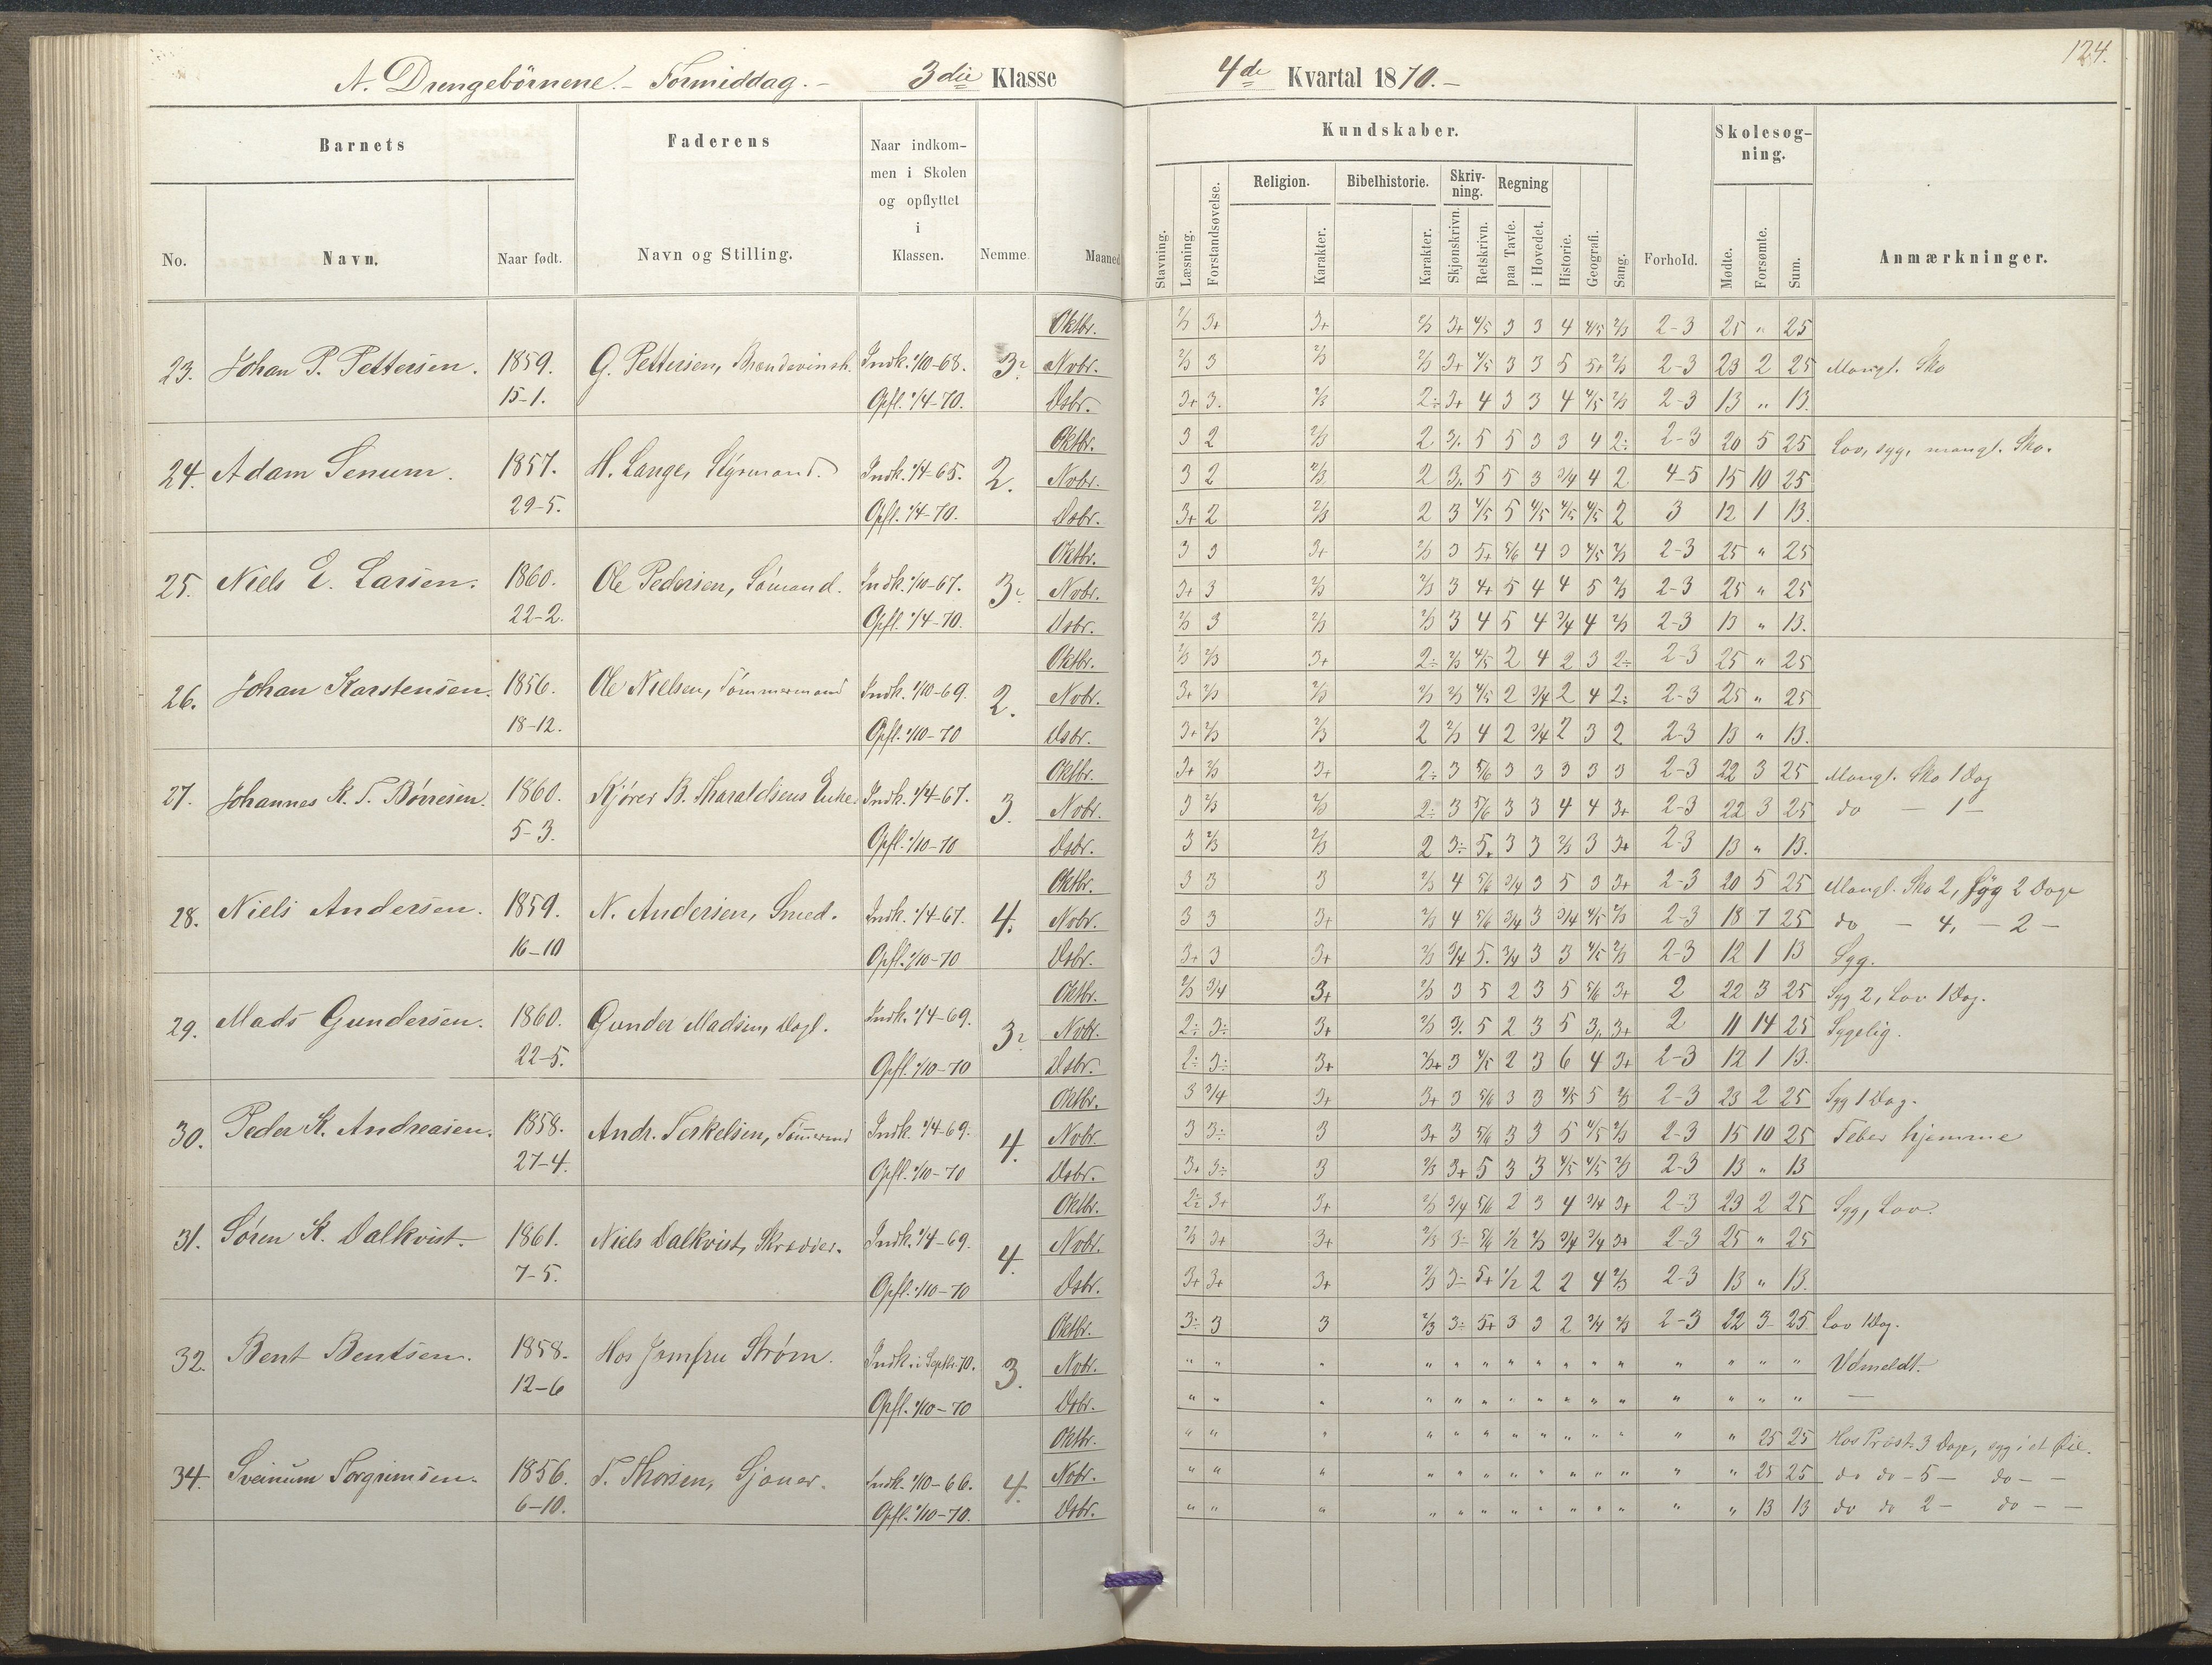 A. Drengebørnene. - Formiddag. - 3die Klasse 4de Kvartal 1870. - 124.
Barnets Faderens Naar indkom-men i Skolen og opflyttet i Klassen. Nemme. Maaned
No. Navn. Naar født. Navn og Stilling.
Kundskaber. Skolesøg-ning.
Stavning. Læsning. Forstandsøvelse. Religion. Karakter. Bibelhistorie. Karakter. Skriv-ning. Skjønskrivn. Retskrivn. Regning paa Tavle. i Hovedet. Historie. Geografi. Sang. Forhold. Mødte. Forsømte. Sum. Anmærkninger.
Oktbr. 2/3 3+ 3+ 2/3 3+ 4/5 3 3 4 4/5 2/3 2-3 25 " 25
23. Johan P. Pettersen. 1859. G. Pettersen, Indk. 1/10-68. Nobr. 2/3 3 2/3 2/3 3+ 4/5 3 3 5 5+ 2/3 2-3 23 2 25 Mangl. Sko
15-1. Opfl. 1/4-70. Dsbr. 3+ 3. 2/3 2÷ 3+ 4 3 3 4 4/5 2/3 2-3 13 " 13.
Oktbr. 3 2 2/3 2 3. 5 5 3 3 4 2÷ 2-3 20 5 25 Lov, syg, mangl. Sko.
24. Adam Senum. 1857. H. Lange, Styrmand. Indk. 1/4-65. 2. Nobr. 3 2 2/3 2 3. 5 5 3 3/4 4 2 4-5 15 10 25
29-5. Opfl. 1/4-70. Dsbr. 3+ 2 2/3 2 3 4/5 5 4/5 4/5 4/5 2 3 12 1 13.
Oktbr. 3 3 3+ 2/3 3 5+ 5/6 4 3 4/5 2/3 2-3 25 " 25
25. Niels E. Larsen. 1860. Ole Pedersen, Sømand. Indk. 1/10-67. Nobr. 3+ 3 2/3 2/3 3 4+ 5 4 4 5 2/3 2-3 25 " 25
22-2. Opfl. 1/4-70. Dsbr. 2/3 3 2/3 2/3 3 4 5 4 3/4 4 2/3 2-3 13 " 13.
Oktbr. 2/3 2/3 3+ 2÷ 2/3 4/5 2 4 2 3 2÷ 2-3 25 " 25
26. Johan Karstensen. 1856. Ole Nielsen, Tømmermand Indk. 1/10-69. 2. Nobr. 3+ 2/3 2/3 2/3 2/3 4/5 2 3/4 2 4 2÷ 2-3 25 " 25
18-12. Opfl. 1/10-70 Dsbr. 3+ 2/3 2/3 2 2/3 4 2 3/4 2 3 2 2-3 13 " 13.
Oktbr. 3+ 2/3 3+ 2÷ 3 5/6 3 3 3 3 3 2-3 22 3 25 Mangl. Sko 1 Dag
27. Johannes K. T. Børresen. 1860. Kjører B. Tharaldsens Enke. Indk. 1/4-67. 3. Nobr. 3 2/3 2/3 2÷ 3 5/6 3 3 4 4 3+ 2-3 22 3 25 do - 1 -
5-3. Opfl. 1/10-70 Dsbr. 3 2/3 2/3 2 3÷ 5+ 3 3 2/3 3 3+ 2-3 13 " 13.
Oktbr. 3 3 3 2/3 4 5/6 3/4 3 5 3 3+ 2-3 20 5 25 Mangl. Sko 2, Syg 2 Dage
28. Niels Andersen. 1859. N. Andersen, Smed. Indk. 1/4-67. 4. Nobr. 3 3 3+ 2/3 4 5/6 3/4 3 3/4 4/5 2/3 2-3 18 7 25 do - 4, - 2 -
16-10 Opfl. 1/10-70 Dsbr. 3+ 3 3+ 2/3 3/4 5. 3/4 3 3 4/5 2/3 2-3 12 1 13 Syg.
Oktbr. 2/3 3/4 3+ 2/3 3 5 2 3 5 5/6 3+ 2 22 3 25 Syg 2, Lov 1 Dag.
29. Mads Gundersen. 1860. Gunder Madsen, Dagl. Indk. 1/4-69. Nobr. 2÷ 3÷ 3+ 2/3 3. 5 2 3 5 3. 3+ 2 11 14 25 Sygelig.
22-5. Opfl. 1/10-70 Dsbr. 2÷ 3÷ 3+ 2/3+ 3 4/5 2 3 6 4 3+ 2-3 12 1 13.
Oktbr. 3 3/4 3+ 3+ 3 5/6 3 3 4/5 5 2/3 2-3 23 2 25 Syg 1 Dag.
30. Peder K. Andreasen. 1858. Andr. Terkelsen, Tømmermd Indk. 1/4-69. 4. Nobr. 3 3÷ 3 3+ 3 5/6 3 3 5 4/5 2/3 2-3 15 10 25 Feber hjemme
27-4. Opfl. 1/10-70 Dsbr. 3+ 3÷ 3 2/3 3+ 5 3 3 4/5 4/5 2/3 2-3 13 " 13
Oktbr. 2÷ 3+ 3+ 2/3 3/4 5/6 2 3 4 3/4 3+ 2-3 23 2 25 Syg, Lov.
31. Søren K. Dalkvist. 1861. Niels Dalkvist, Skrædder. Indk. 1/4-69. 4. Nobr. 2/3 3+ 3+ 2/3 3÷ 5/6 1/2 2/3 3/4 3/4 3+ 2-3 25 " 25
7-5. Opfl. 1/10-70 Dsbr. 3+ 3+ 3+ 2/3 3÷ 5+ 1/2 2 2 4 2/3 2-3 13 " 13.
Oktbr. 3÷ 3 3 2/3 3÷ 5+ 3 3 2 3/4 2/3 2-3 22 3 25 Lov 1 Dag.
32. Bent Bentsen. 1858. Hos Jomfru Strøm. Indk. i Septbr. 70. 3. Nobr. " " " " " " " " " " " " " " " Udmeldt.
12-6 Opfl. 1/10-70 Dsbr. " " " " " " " " " " " " " " " -
Oktbr. " " " " " " " " " " " " " 25 25 Hos Prost 3 Dage, syg i et Øie.
34. Sveinum Torgrimsen. 1856. T. Thorsen, Gjøuer. Indk. 1/10-66. 4. Nobr. " " " " " " " " " " " " " 25 25 do do - 5 - do - -
6-10. Opfl. 1/10-70. Dsbr. " " " " " " " " " " " " " 13 13 do do 2 - do - -